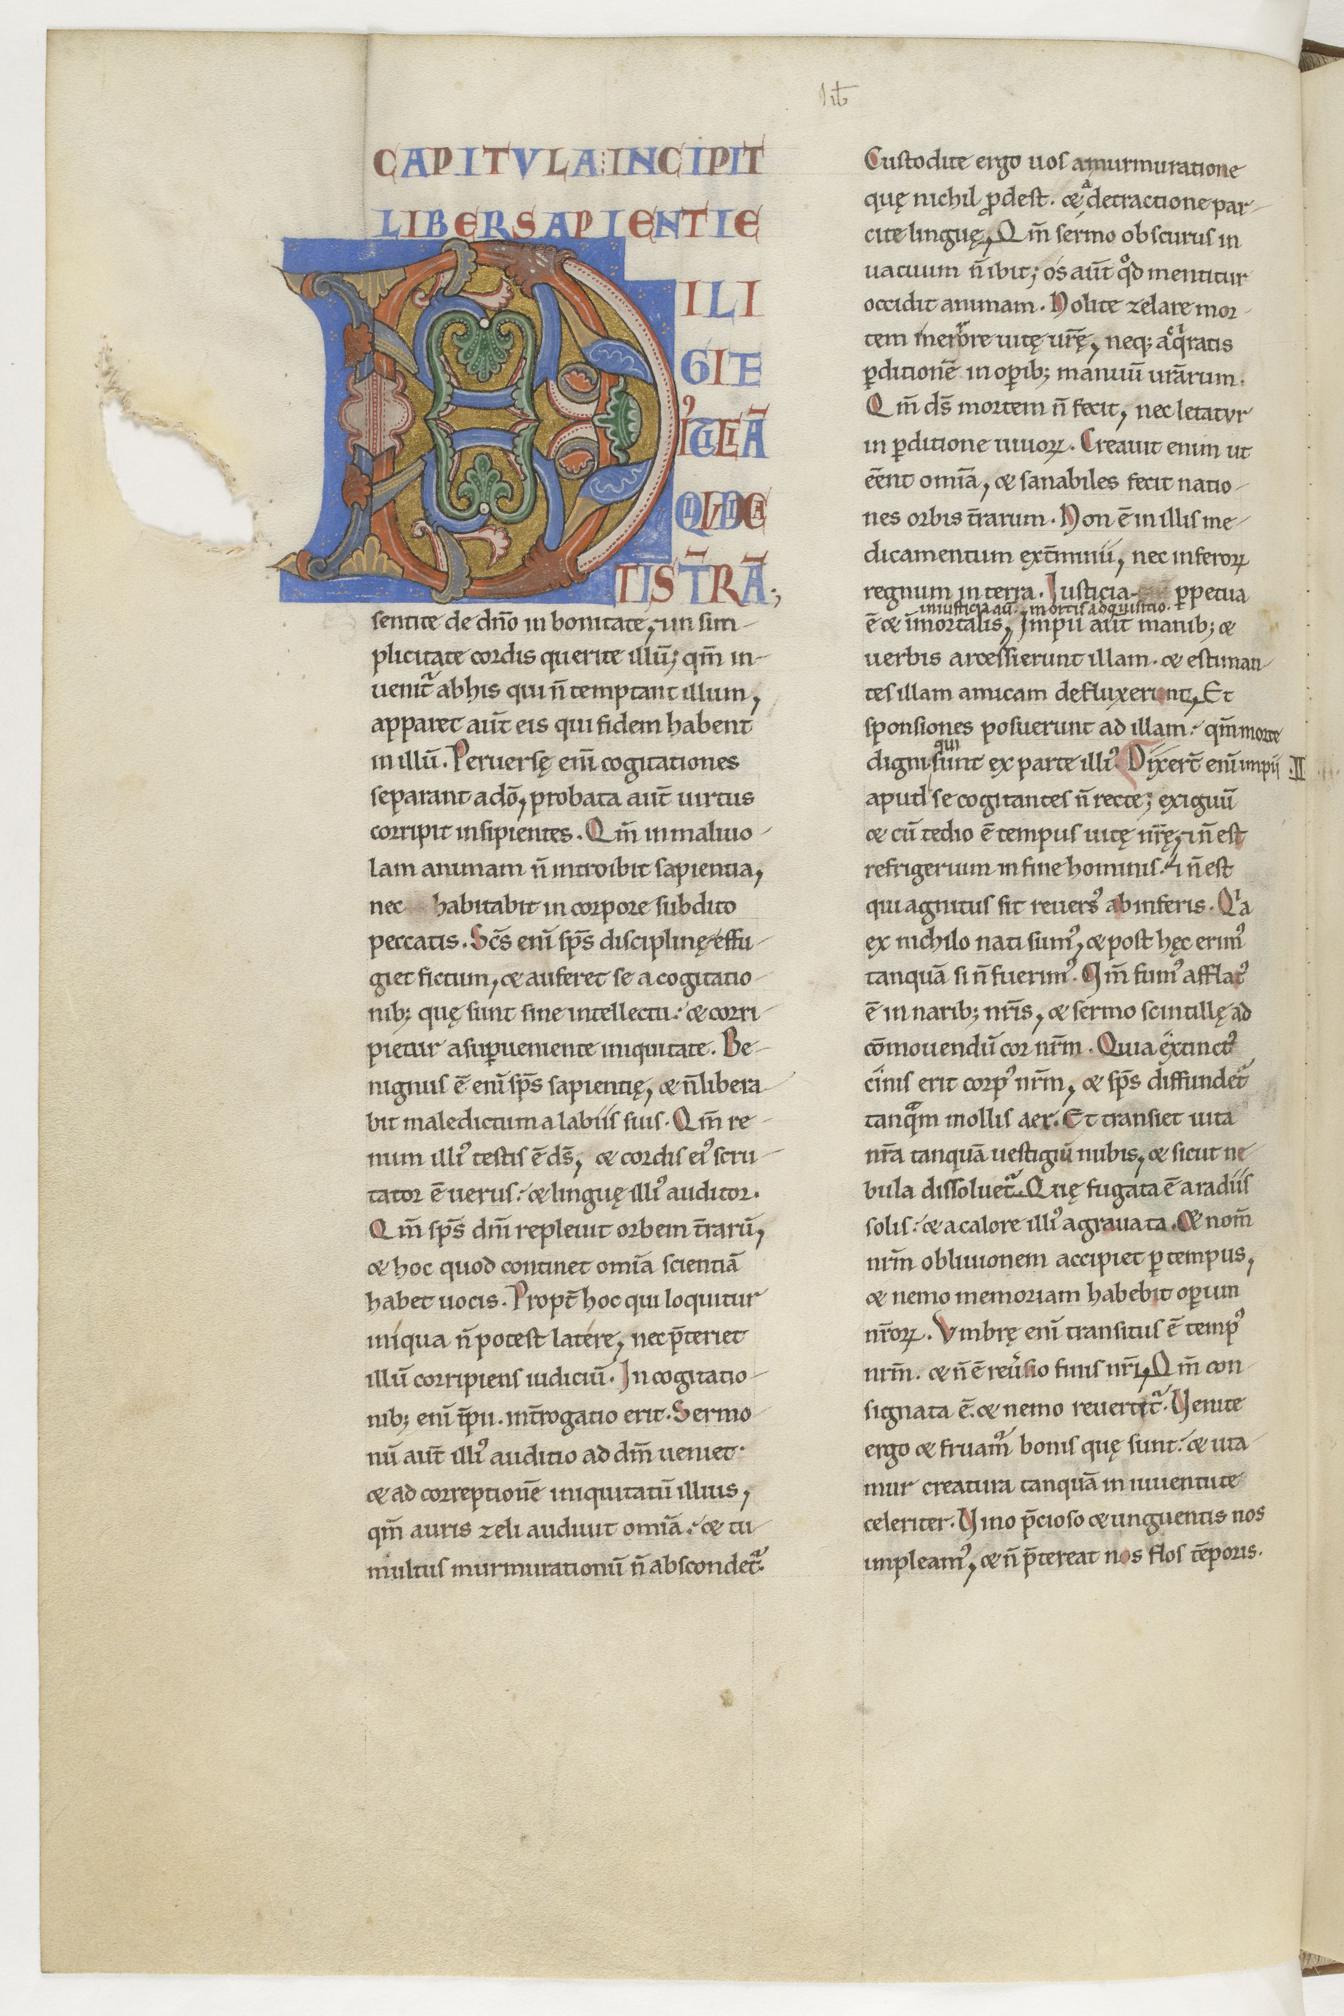 lib
CAPITVLA: INCIPIT
LIBER SAPIENTIE
DILI
GIE
IVSTICIĀ
QVI IVDICA
TIS T̄RĀ;
sentite de dn̄o in bonitate, ⁊ in sim-
plicitate cordis querite illū; qm̄ in-
uenit᷑ ab his qui n̄ temptant illum,
apparet aut̄ eis qui fidem habent
in illū. Peruersę eni᷑ cogitationes
separant a dō, probata aut̄ uirtus
corripit insipientes. Qm̄ in maliuo-
lam animam n̄ introibit sapientia,
nec habitabit in corpore subdito
peccatis. Sc̄s eni᷑ sp̄s disciplinę effu-
giet fictum, & auferet se a cogitatio-
nib; quę sunt sine intellectu: & corri-
pietur a sup̱ueniente iniquitate. Be-
nignus ē eni᷑ sp̄s sapientię, & n̄ libera-
bit maledictum a labiis suis. Qm̄ re-
num illiꝰ testis ē ds̄, & cordis eiꝰ scru-
tator ē uerus: & linguę illiꝰ auditor.
Qm̄ sp̄s dn̄i repleuit orbem t̄rarū,
& hoc quod continet omīa scientiā
habet uocis. Propt̄ hoc qui loquitur
iniqua n̄ potest latere, nec p̄teriet
illū corripiens iudiciū. In cogitatio-
nib; eni᷑ īpii. int̄rogatio erit. Sermo-
nū aut̄ illiꝰ auditio ad dm̄ ueniet:
& ad correptionē iniquitatū illius,
qm̄ auris zeli audiuit omīa: & tu-
multus murmurationū n̄ abscondet᷑.
Custodite ergo uos a murmuratione
quę nichil ꝓdest. & a detractione par-
cite linguę, Qm̄ sermo obscurus in
uacuum n̄ ibit; os aut̄ qͦd mentitur
occidit animam. Nolite zelare mor-
tem in errore uitę ur̄ę, neq; acqͥratis
ꝑditionē in oꝑib; manuū urārum.
Qm̄ ds̄ mortem n̄ fecit, nec letatur
in ꝑditione uiuoꝝ. Creauit enim ut
eēnt omīa, & sanabiles fecit natio-
nes orbis t̄rarum. Non ē in illis me-
dicamentum ext̄minii, nec inferoꝝ
regnum in terra. Justicia ꝑpetua
iniusticia aū. mortis adquisitio.
ē & īmortalis, Jmpii aut̄ manib; &
uerbis arcessierunt illam. & estiman-
tes illam amicam defluxerunt, Et
sponsiones posuerunt ad illam: qm̄ morte
qui
digni sunt ex parte illiꝰ Dixert̄ eni᷑ impii .II.
aput se cogitantes n̄ recte; exiguū
& cū tedio ē tempus uitę nr̄ę, ⁊ n̄ est
refrigerium in fine hominis: ⁊ n̄ est
qui agnitus sit reuersꝰ ab inferis. Qͥa
ex nichilo nati sumꝰ, & post hęc erimꝰ
tanquā si n̄ fuerimꝰ. Qm̄ fumꝰ afflatꝰ
ē in narib; nr̄is, & sermo scintillę ad
cōmouendū cor nrm̄. Quia extinctꝰ
cinis erit corpꝰ nrm̄, & sp̄s diffundet᷑
tanqᷓm mollis aer. Et transiet uita
nr̄a tanquā uestigiū nubis, & sicut ne-
bula dissoluet᷑. Quę fugata ē a radiis
solis: & a calore illiꝰ agrauata. & nom̄
nrm̄ obliuionem accipiet ꝑ tempus,
& nemo memoriam habebit oꝑum
nr̄oꝝ. Vmbrę eni᷑ transitus ē tempꝰ
nrm̄. & n̄ ē reūsio finis nr̄i, Qm̄ con-
signata ē. & nemo reuertit᷑. Venite
ergo & fruamꝰ bonis quę sunt: & uta-
mur creatura tanquā in iuuentute
celeriter. Vino p̄cioso & unguentis nos
impleamꝰ, & n̄ p̄tereat nos flos tēporis.